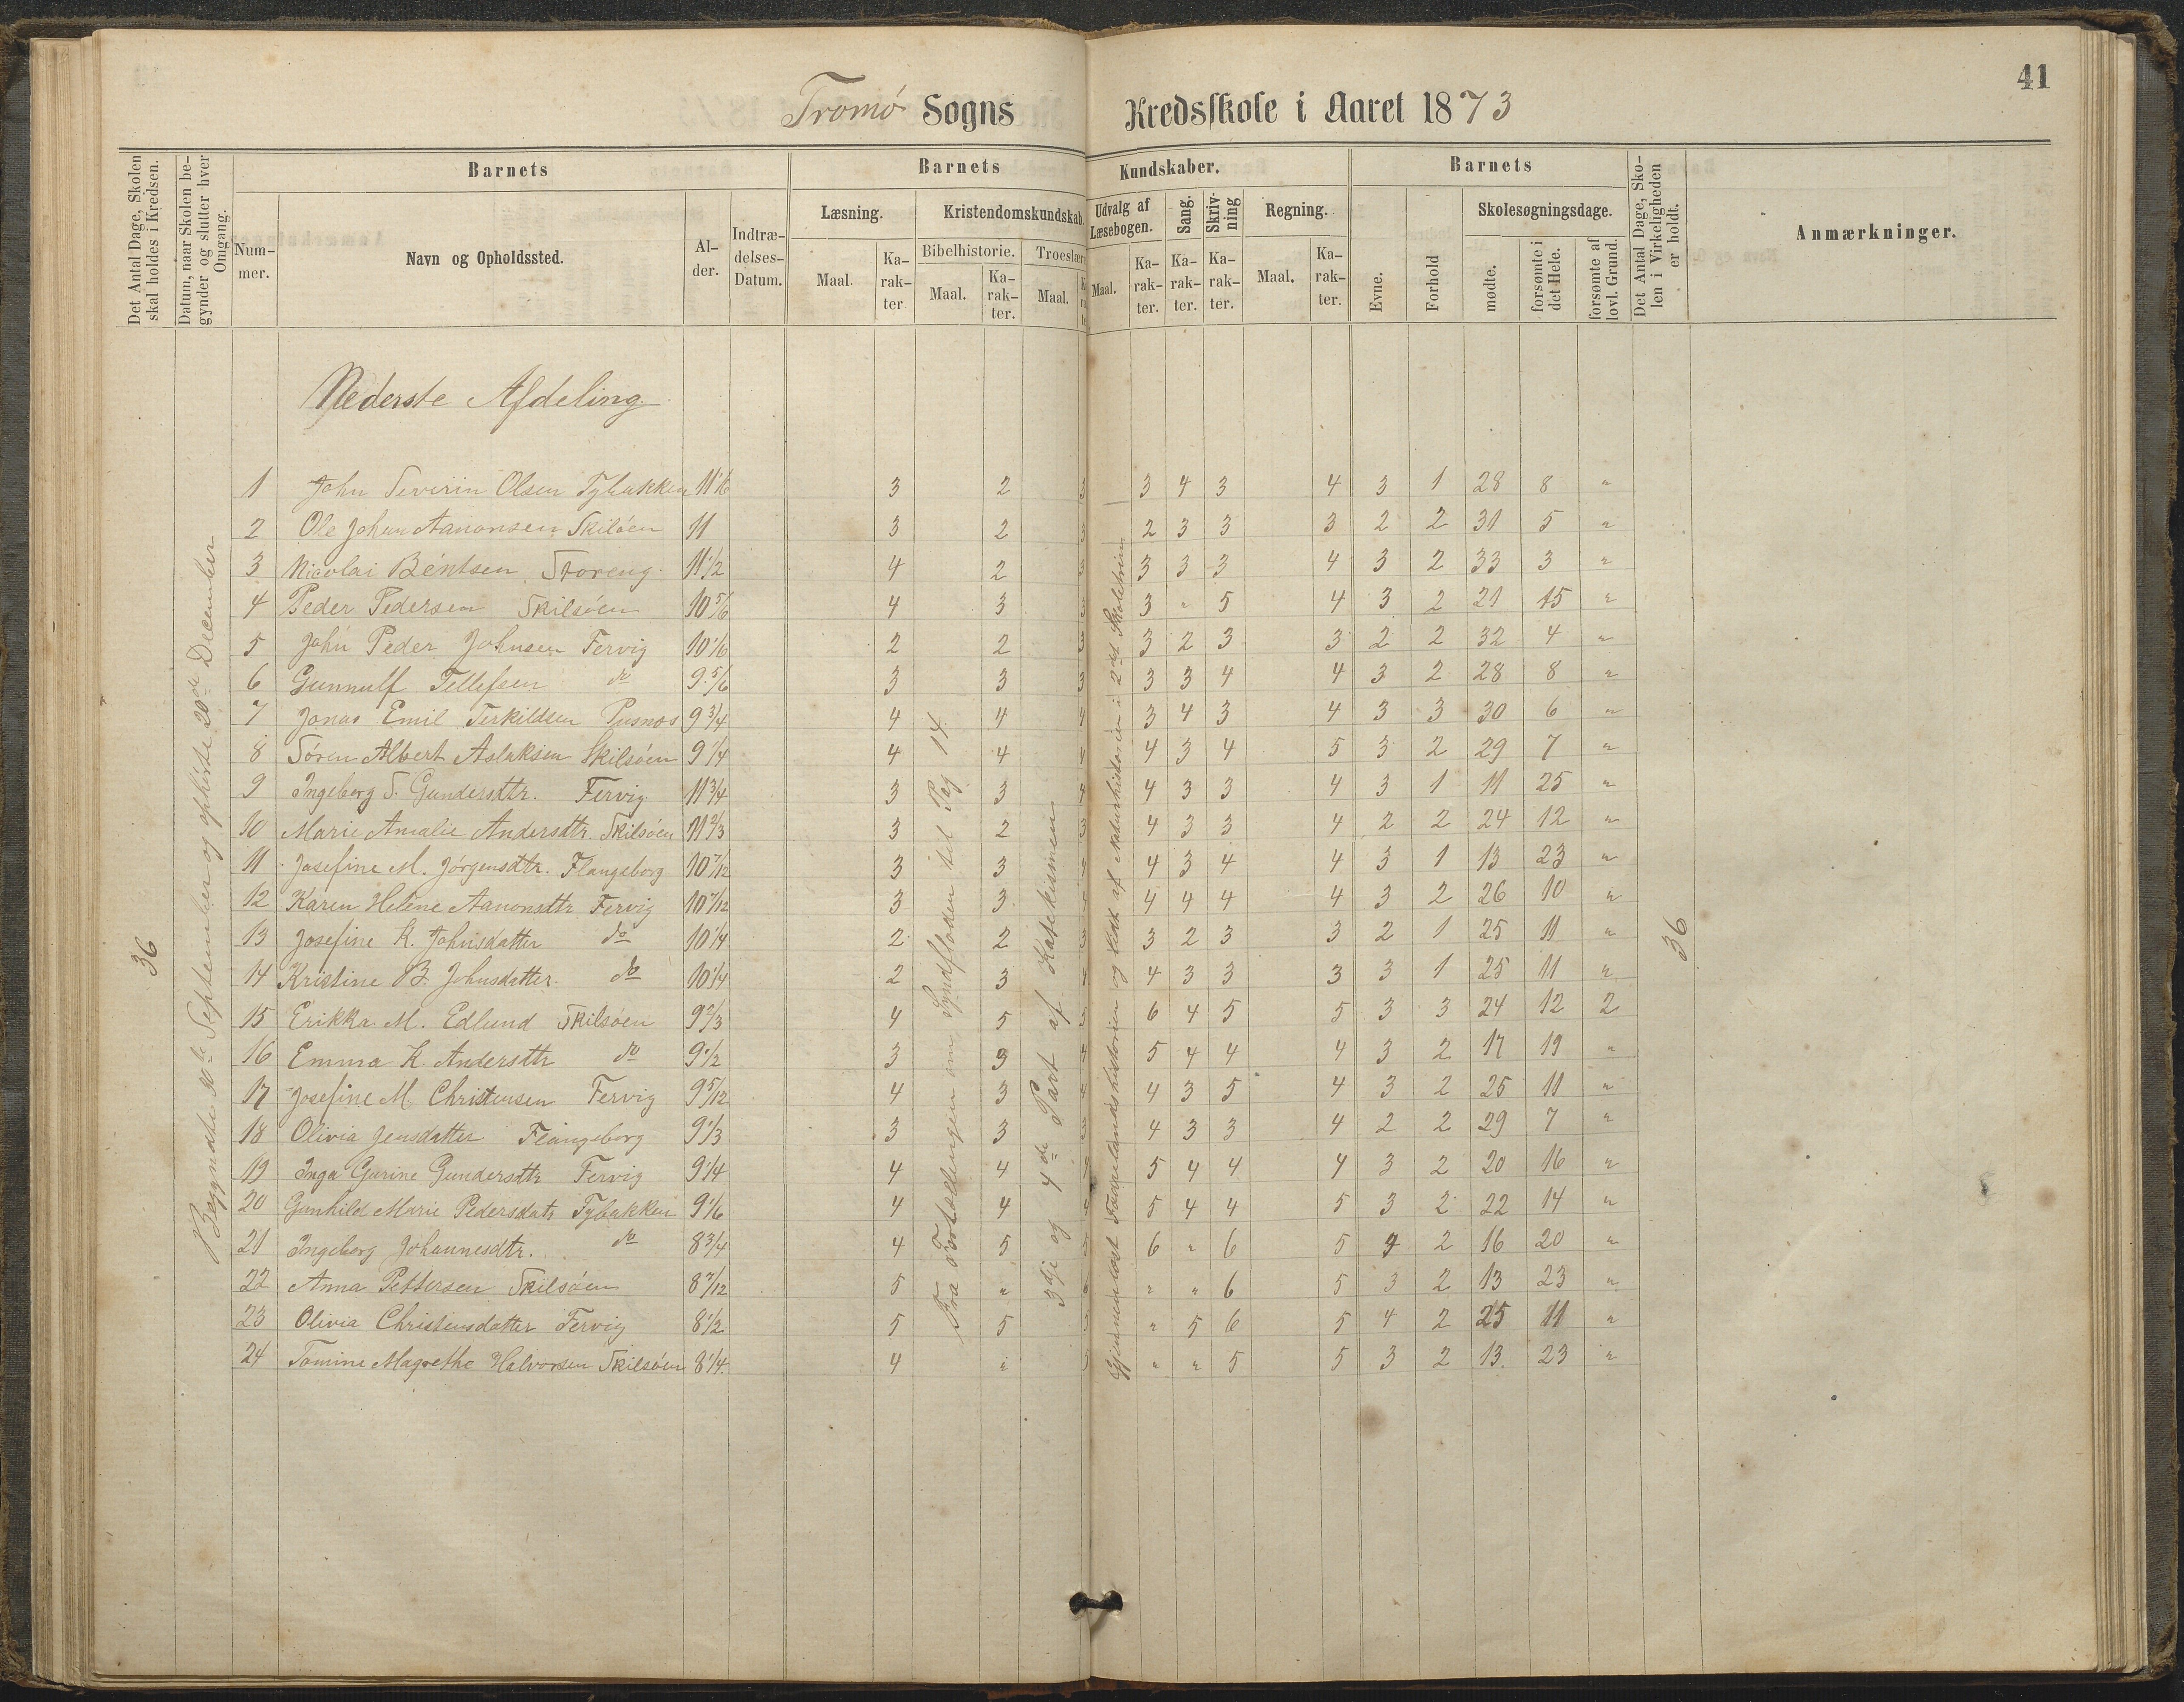 41
Tromø Sogns Kredsskole i Aaret 1873
Det Antal Dage, Skolen skal holdes i Kredsen.
Datum, naar Skolen begynder og slutter hver Omgang.
Barnets
Barnets Kundskaber.
Barnets
Det Antal Dage, Skolen i Virkeligheden er holdt.
Anmærkninger.
Nummer.
Navn og Opholdssted.
Alder.
Indtrædelses-Datum.
Læsning.
Kristendomskundskab.
Udvalg af Læsebogen.
Sang.
Skrivning
Regning.
Evne.
Forhold
Skolesøgningsdage.
Bibelhistorie.
Troeslære
Maal. Karakter Maal. Karakter. Maal. Maal. Karakter. Karakter. Karakter. Maal. Karakter.
mødte.
forsømte i det Hele.
forsømte af lovl. Grund.
Nederste Afdeling
36
Begyndte September og ophørte 20de December
Fra Fortællingen om Syndfloden til Pag 14
3dje og 4de Part af Katekismen
Gjennemlæst Fædrelandshistorien og lidt af Naturhistorien i 2det Skoletrin
36
1 John Severin Olsen Tybakken 11 1/6 3 2 3 3 4 3 4 3 1 28 8 "
2 Ole Johan Aanonsen Skilsøen 11 3 2 3 2 3 3 3 2 2 31 5 "
3 Nicolai Bentsen Storeng 11 1/2 4 2 3 3 3 3 4 3 2 33 3 "
4 Peder Pedersen Skilsøen 10 5/6 4 3 3 3 " 5 4 3 2 21 15 "
5 John Peder Johnsen Fervig 10 1/6 2 2 3 3 2 3 3 2 2 32 4 "
6 Gunnulf Tellefsen do 9 5/6 3 3 3 3 3 4 4 3 2 28 8 "
7 Jonas Emil Terkildsen Pusnes 9 3/4 4 4 4 3 4 3 4 3 3 30 6 "
8 Søren Albert Aslaksen Skilsøen 9 1/4 4 4 4 4 3 4 5 3 2 29 7 "
9 Ingeborg S. Gundersdtr. Fervig 11 3/4 3 3 4 4 3 3 4 3 1 11 25 "
10 Marie Amalie Andersdtr. Skilsøen 11 2/3 3 2 3 4 3 3 4 2 2 24 12 "
11 Josefine M. Jørgensdtr. Flangeborg 10 7/12 3 3 4 4 3 4 4 3 1 13 23 "
12 Karen Heléne Aanonsdtr Fervig 10 7/12 3 3 4 4 4 4 3 2 26 10 "
13 Josefine K. Johnsdatter do 10 1/4 2 2 3 3 2 3 3 2 1 25 11 "
14 Kristine B. Johnsdatter do 10 1/4 2 3 4 4 3 3 3 3 1 25 11 "
15 Erikka M. Edlund Skilsøen 9 2/3 4 5 6 4 5 5 3 3 24 12 2
16 Emma K. Andersdtr do 9 1/2 3 3 4 5 4 4 4 3 2 17 19 "
17 Josefine M. Christensen Fervig 9 5/12 4 3 4 4 3 5 4 3 2 25 11 "
18 Olivia Jensdatter Flangeborg 9 1/3 3 3 3 4 3 3 4 2 2 29 7 "
19 Inga Gurine Gundersdtr Fervig 9 1/4 4 4 5 4 4 4 3 2 20 16 "
20 Gunhild Marie Pedersdatr Tybakken 9 1/6 4 4 5 4 4 5 3 2 22 14 "
21 Ingeborg Johannesdtr. do 8 3/4 4 5 6 " 6 5 4 2 16 20 "
22 Anna Pettersen Skilsøen 8 7/12 5 " " " 6 5 3 2 13 23 "
23 Olivia Christensdatter Fervig 8 1/2 5 5 " 5 6 5 4 2 25 11 "
24 Tomine Magrethe Halvorsen Skilsøen 8 1/4 4 " " " 5 5 3 2 13 23 "